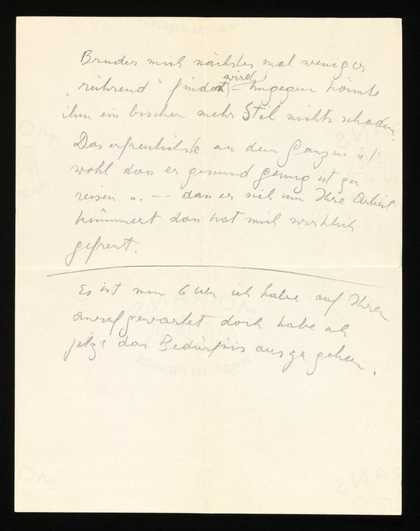 Bruder mich nächstes mal weniger
„rührend“ findet wird – hingegen könnte
ihm ein bischen mehr Stil nichts schaden.
Das erfreulichste an dem Ganzen ist
wohl das er gesund genug ist zu
reisen u. –– das er sich um Ihre Arbeit
kümmert das hat mich wirklich
gefreut.
Es ist nun 6 Uhr ich habe auf Ihren
Anruf gewartet doch habe ich
jetzt das Bedürfnis auszugehen.